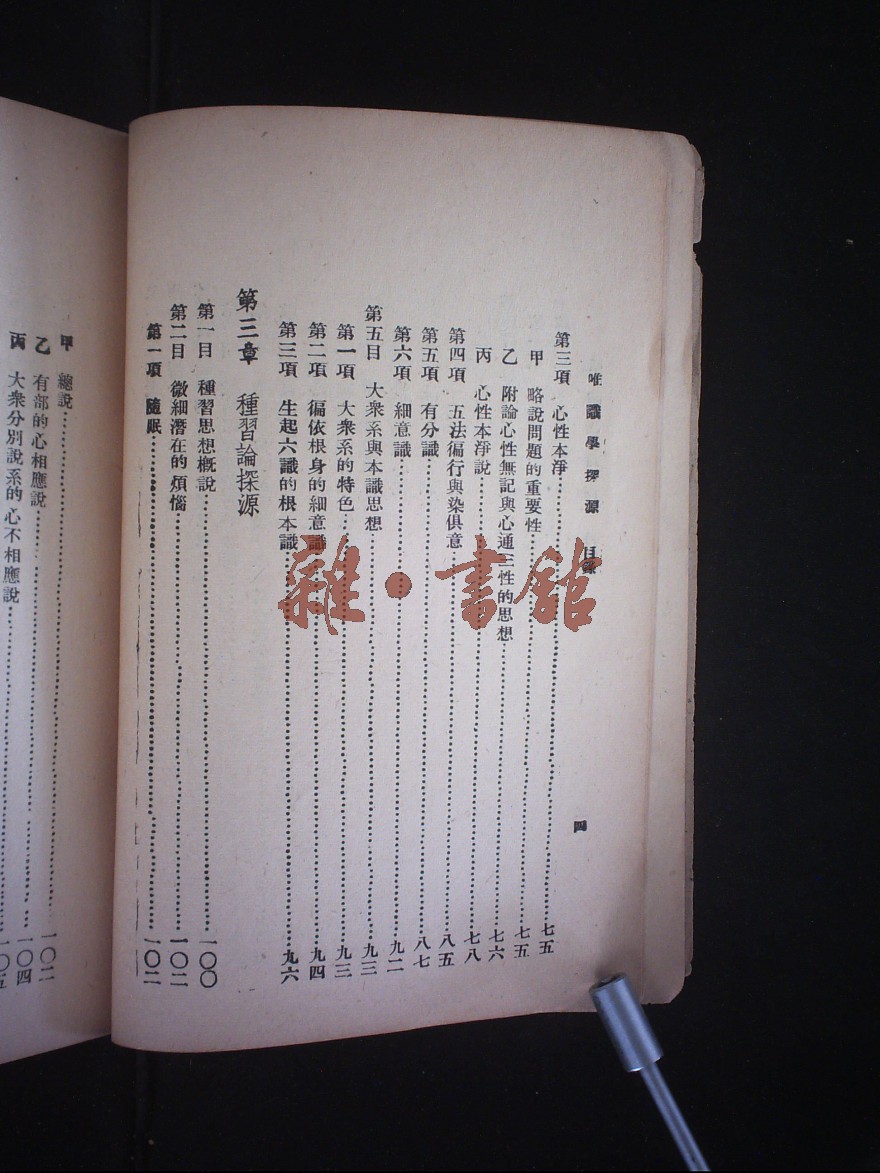 唯識學探源 目錄 四
第三項 心性本淨……七五
甲 略說問題的重要性……七五
乙 附論心性無記與心通三性的思想……七六
丙 心性本淨說……七八
第四項 五法徧行與染俱意……八五
第五項 有分識……八七
第六項 細意識……九二
第五目 大衆系與本識思想……九三
第一項 大衆系的特色……九三
第二項 徧依根身的細意識……九四
第三項 生起六識的根本識……九六
第三章 種習論探源
第一目 種習思想概說……一〇〇
第二目 微細潛在的煩惱……一〇二
第一項 隨眠……一〇二
甲 總說……一〇二
乙 有部的心相應說……一〇四
丙 大衆分別說系的心不相應說……一〇五
雜·書館